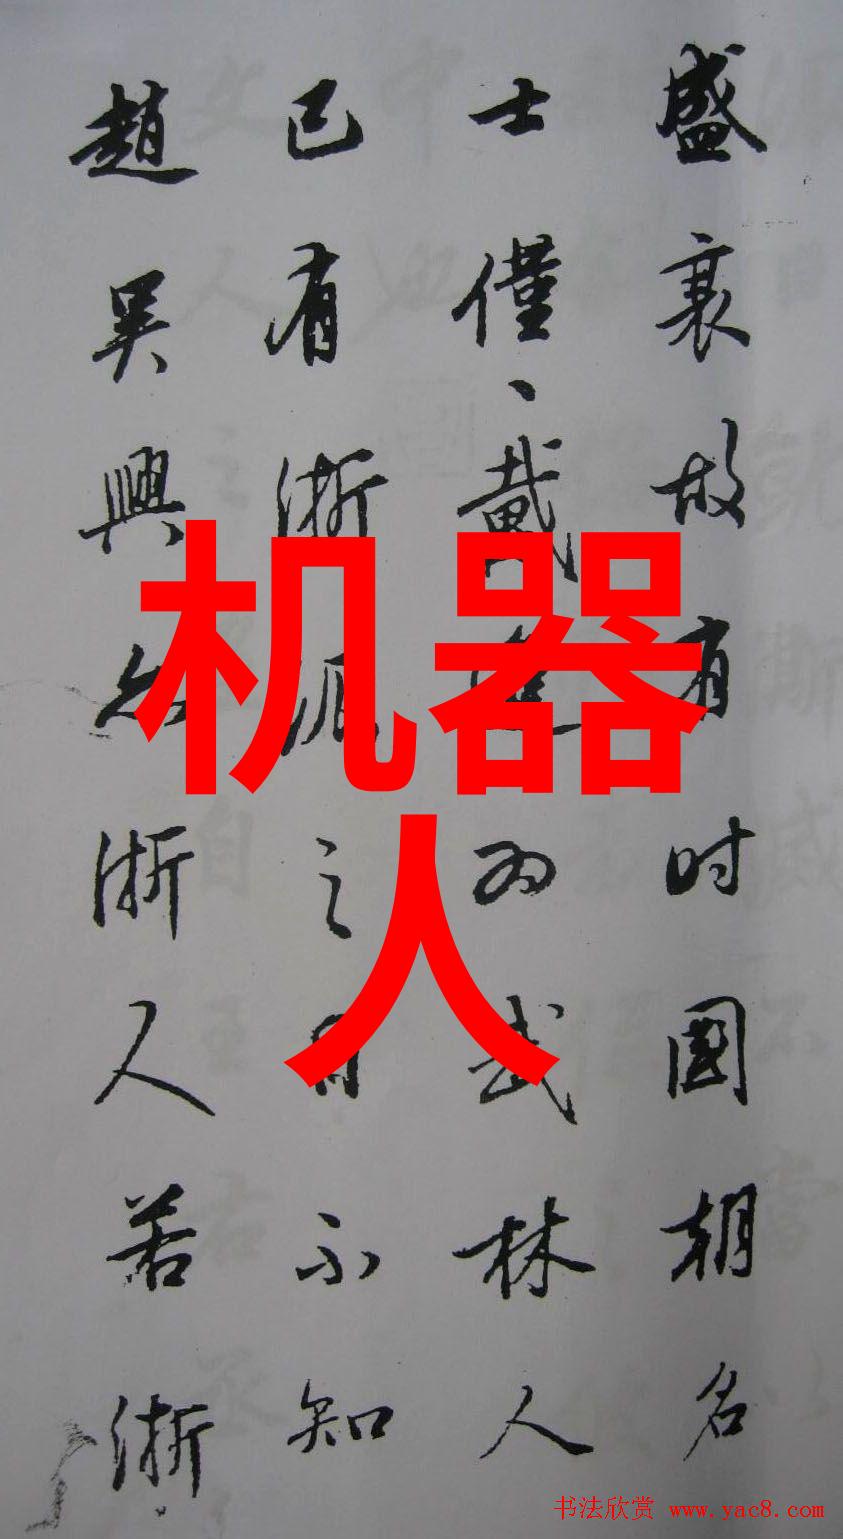 盛衰故有时國朝名
士僅、戴進为武林人
已有浙派之目不知
趙吴興亦浙人若浙
机器
人
书法欣赏 www.yac8.com